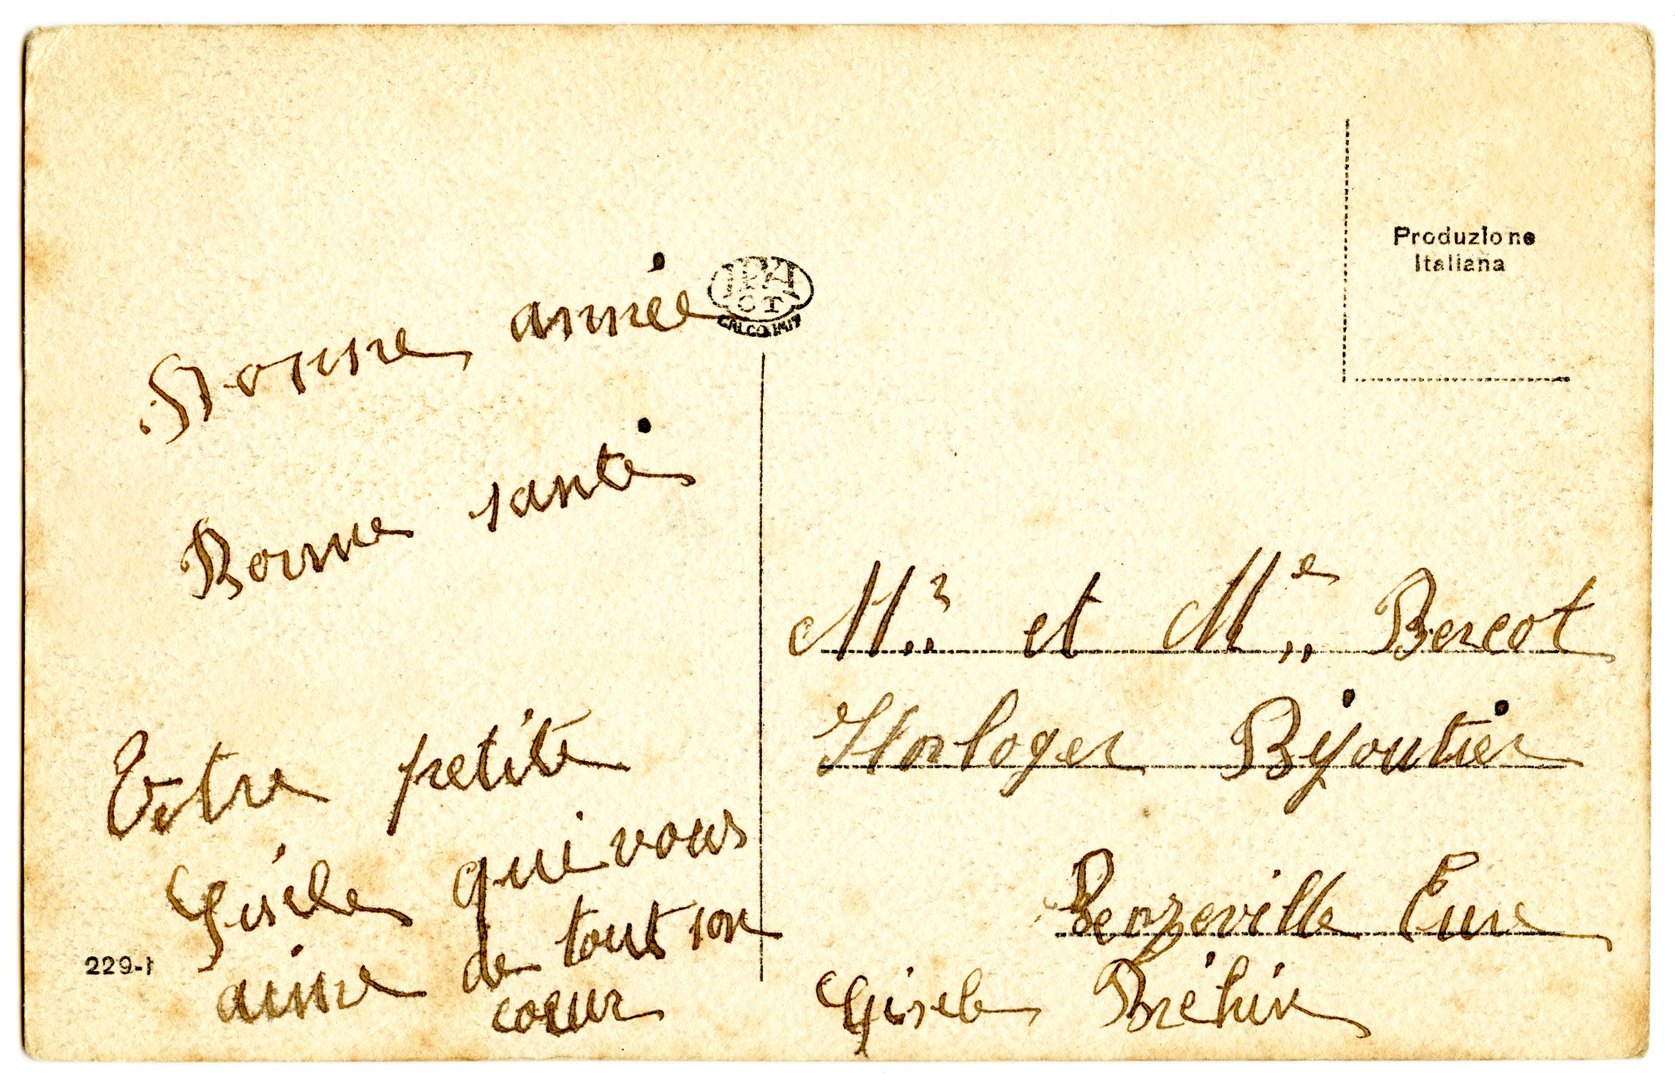 Bonne année
Bonne santé
Votre petite
Gisèle qui vous
aime de tout son
coeur
229-1
CT
Produzione
Italiana
Mr et Me Bercot
Horloger Bijoutier
Benzeville Eure
Gisele Bréhin